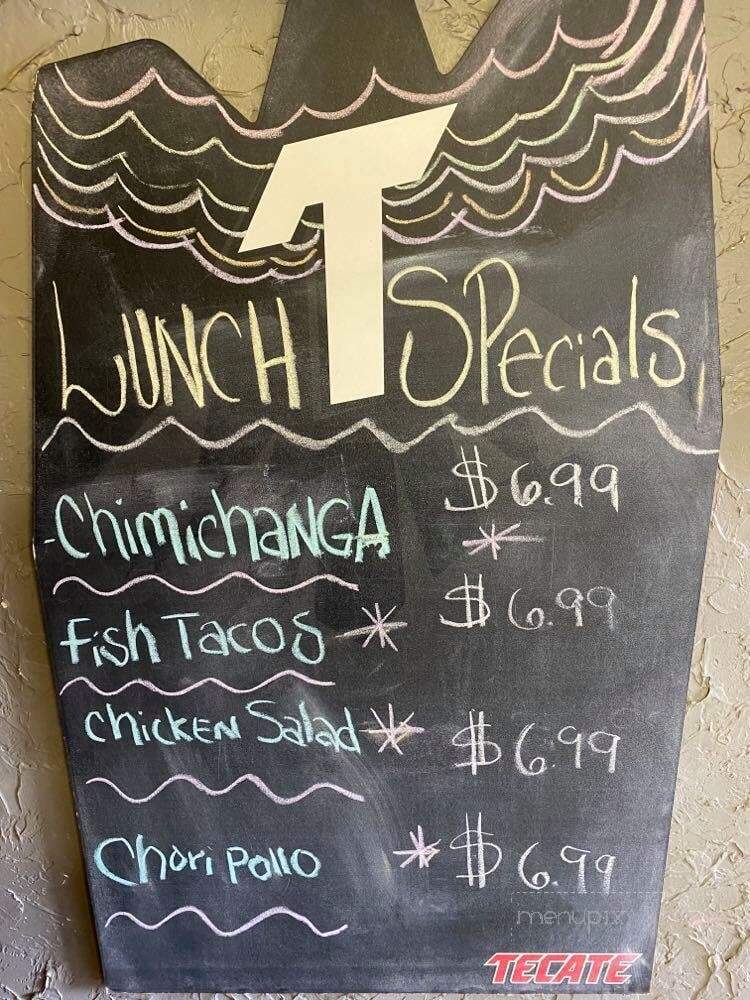 T
LUNCH SPecials
-ChimichaNGA $6.99
*
Fish Tacos * $6.99
chicKEN Salad * $6.99
Chori Pollo * $6.99
menupix
TECATE